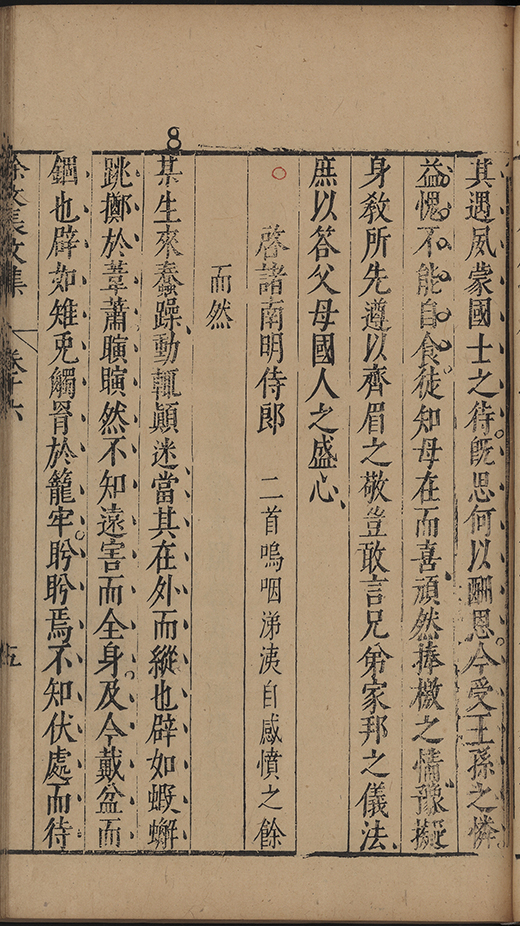 8
其遇風蒙國士之待旣思何以酬恩今受王孫之憐
益愧不能自食徒知母在而喜頑然捧檄之情豫擬
身敎所先遵以齊眉之敬豈敢言兄弟家邦之儀法
庶以答父母國人之盛心
啓諸南明侍郎 二首嗚咽涕洟自感憤之餘
而然
某生來蠢躁動輒顚迷當其在外而縱也辟如蝦蠏
跳擲於葦蕭瞋瞋然不知遠害而全身及今戴盆而
錮也辟如雉兎觸胥於籠牢盻盻焉不知伏處而待
徐文長文集 卷十六 五